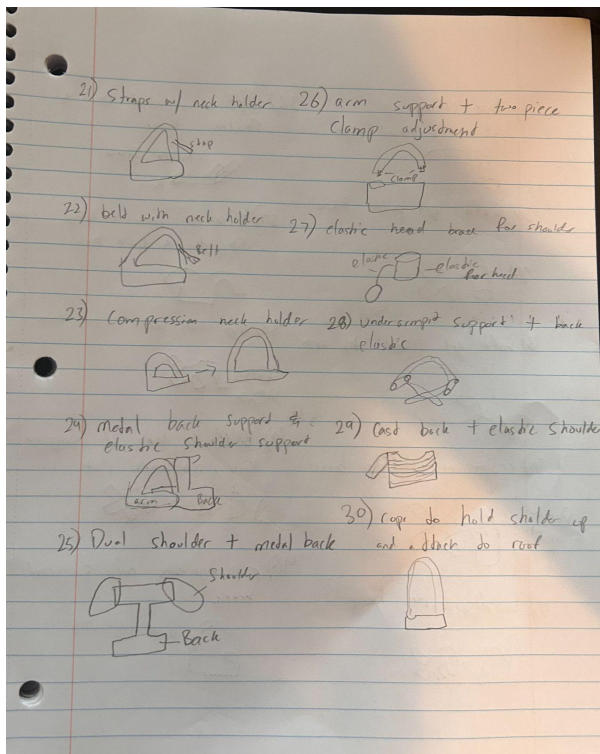 21) Straps w/ neck holder
strap
22) belt with neck holder
Belt
23) Compression neck holder
24) metal back support &
elastic shoulder support
arm
Back
25) Dual shoulder + metal back
Shoulder
Back
26) arm support + two piece
clamp adjustment
clamp
27) elastic head brace for shoulder
elastic
elastic
for head
28) underarmpit support + back
elastic
29) Cast back + elastic shoulder
30) rope to hold sholder up
and attach to roof